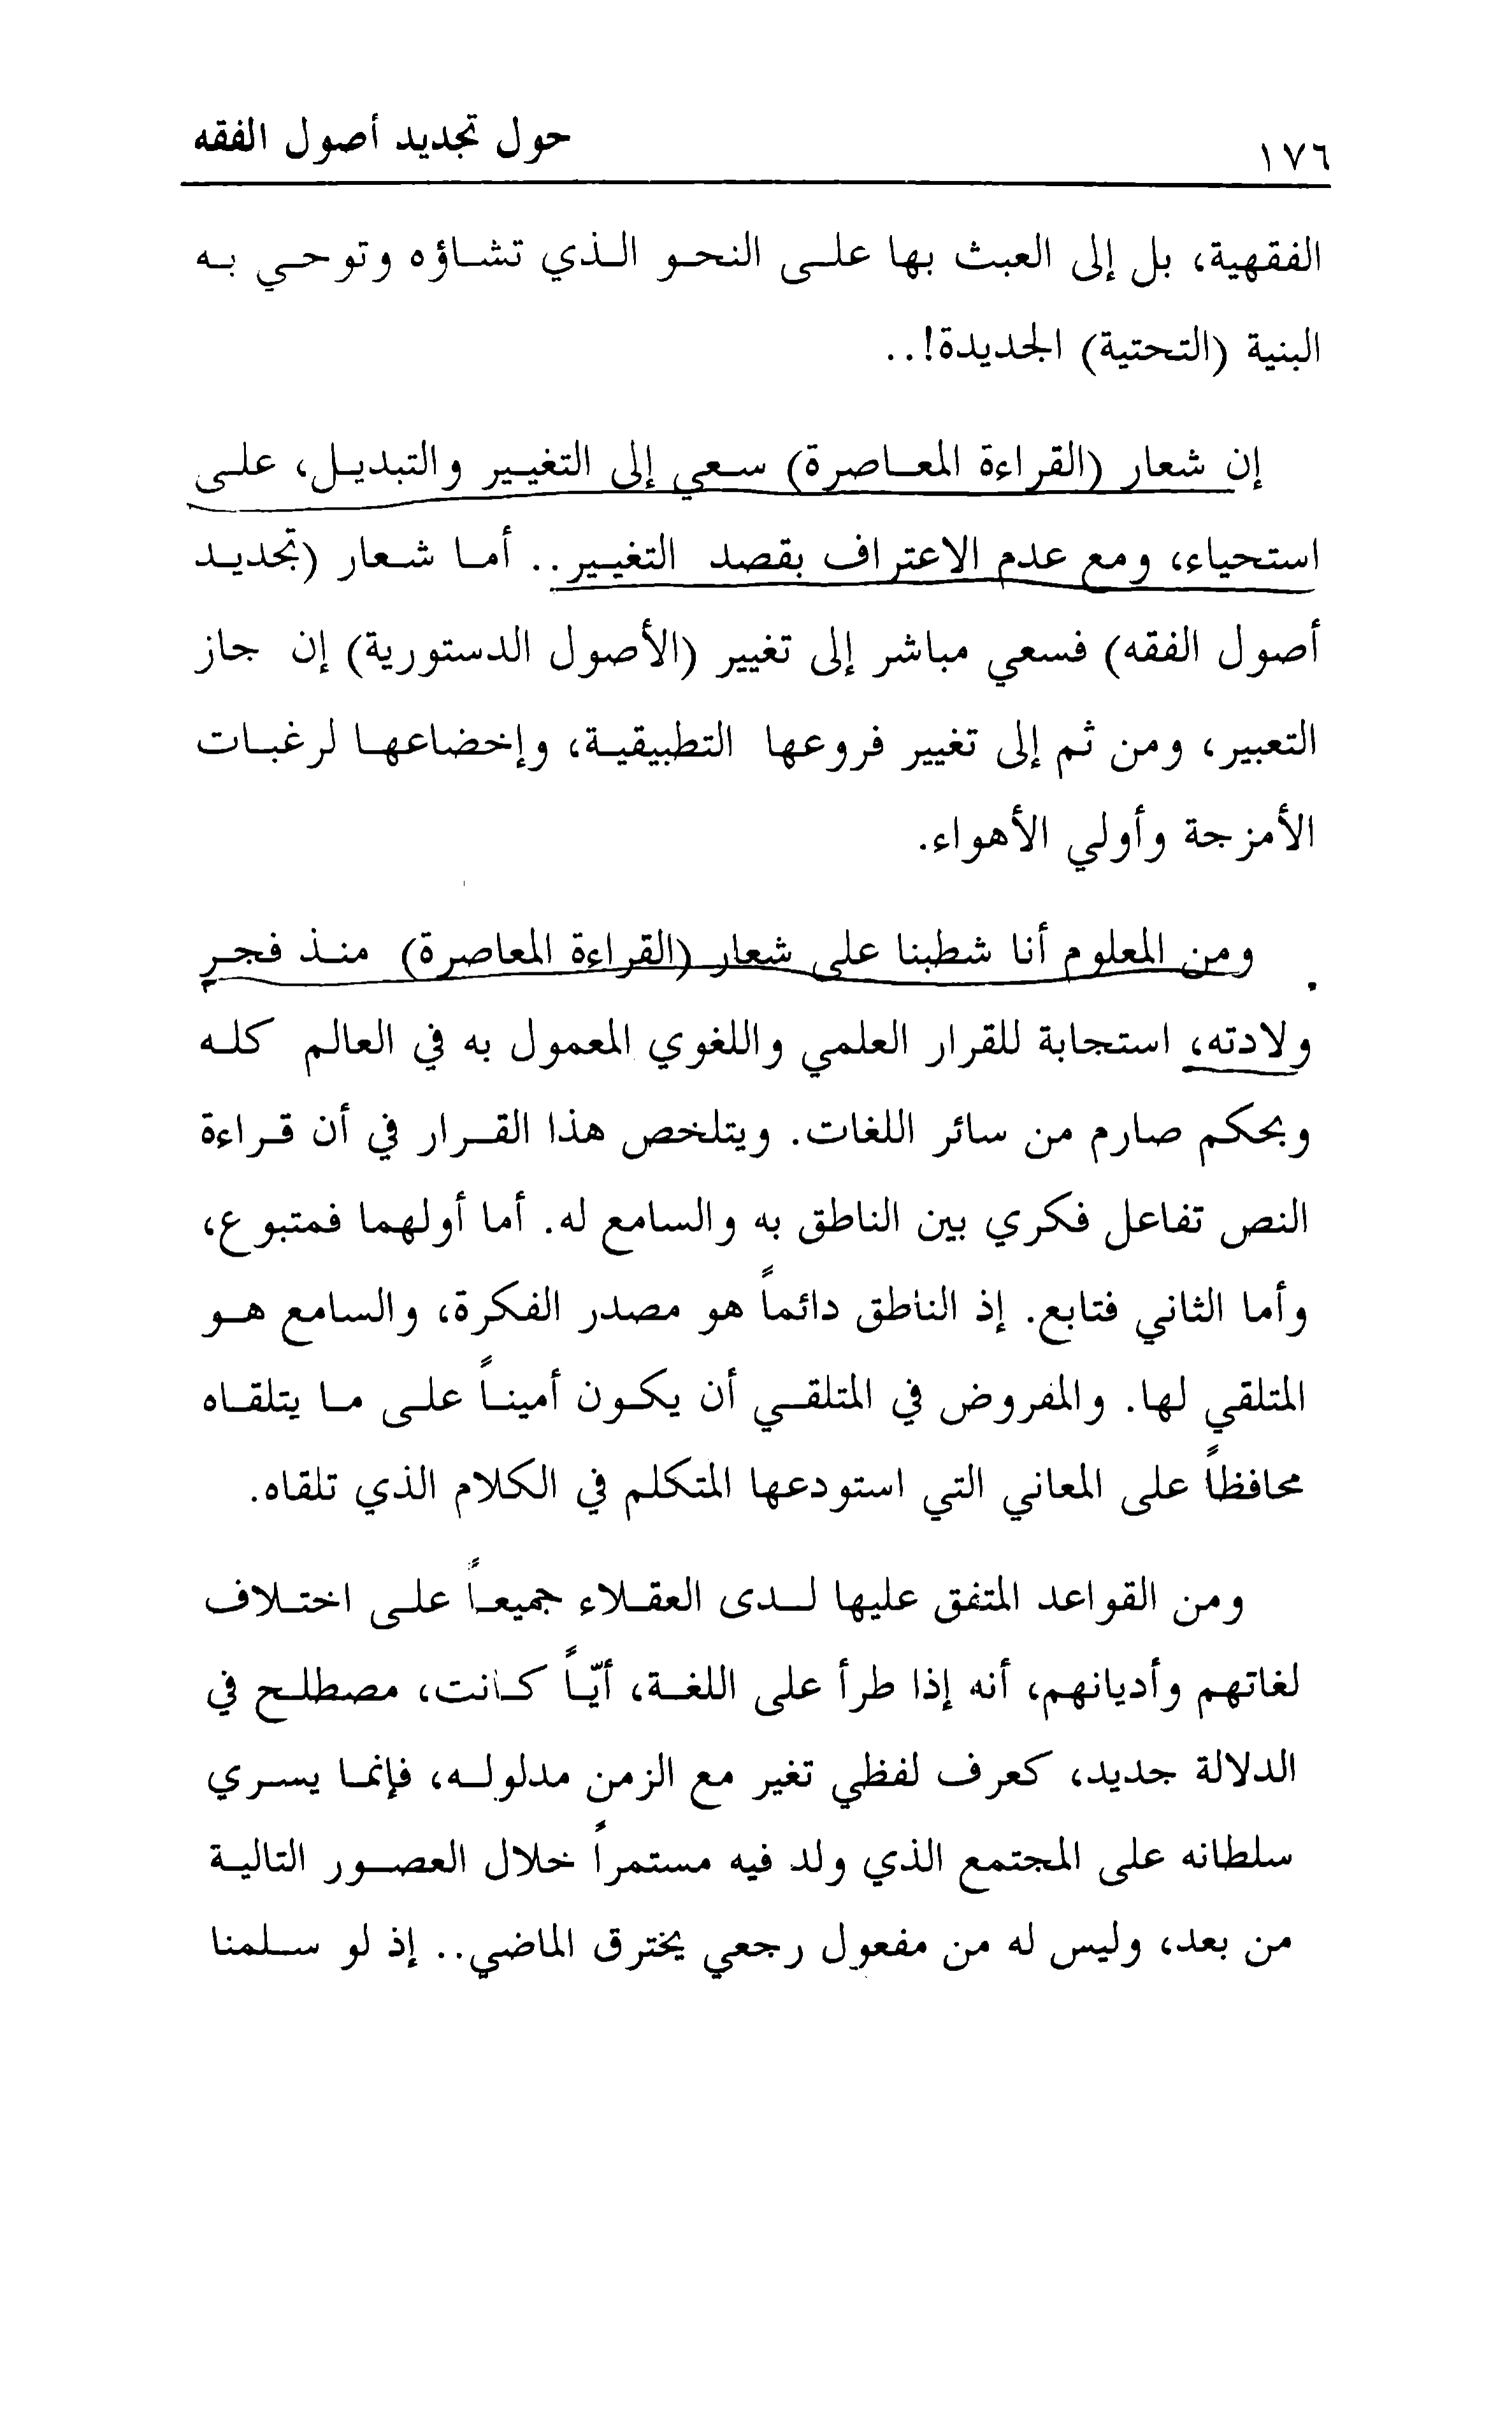 ١٧٦
حول تجديد أصول الفقه
الفقهية، بل إلى العبث بها على النحو الذي تشاؤه وتوحي به
البنية (التحتية) الجديدة!..
إن شعار (القراءة المعاصرة) سعي إلى التغيير والتبديل، على
استحياء، ومع عدم الاعتراف بقصد التغيير.. أما شعار (تجديد
أصول الفقه) فسعي مباشر إلى تغيير (الأصول الدستورية) إن جاز
التعبير، ومن ثم إلى تغيير فروعها التطبيقية، وإخضاعها لرغبات
الأمزجة وأولي الأهواء.
ومن المعلوم أنا شطبنا على شعار (القراءة المعاصرة) منذ فجر
ولادته، استجابة للقرار العلمي واللغوي المعمول به في العالم كله
وبحكم صارم من سائر اللغات. ويتلخص هذا القرار في أن قراءة
النص تفاعل فكري بين الناطق به والسامع له. أما أولهما فمتبوع،
وأما الثاني فتابع. إذ الناطق دائماً هو مصدر الفكرة، والسامع هو
المتلقي لها. والمفروض في المتلقي أن يكون أميناً على ما يتلقاه
محافظاً على المعاني التي استودعها المتكلم في الكلام الذي تلقاه.
ومن القواعد المتفق عليها لدى العقلاء جميعاً على اختلاف
لغاتهم وأديانهم، أنه إذا طرأ على اللغة، أيّاً كانت، مصطلح في
الدلالة جديد، كعرف لفظي تغير مع الزمن مدلوله، فإنما يسري
سلطانه على المجتمع الذي ولد فيه مستمراً خلال العصور التالية
من بعد، وليس له من مفعول رجعي يخترق الماضي.. إذ لو سلمنا